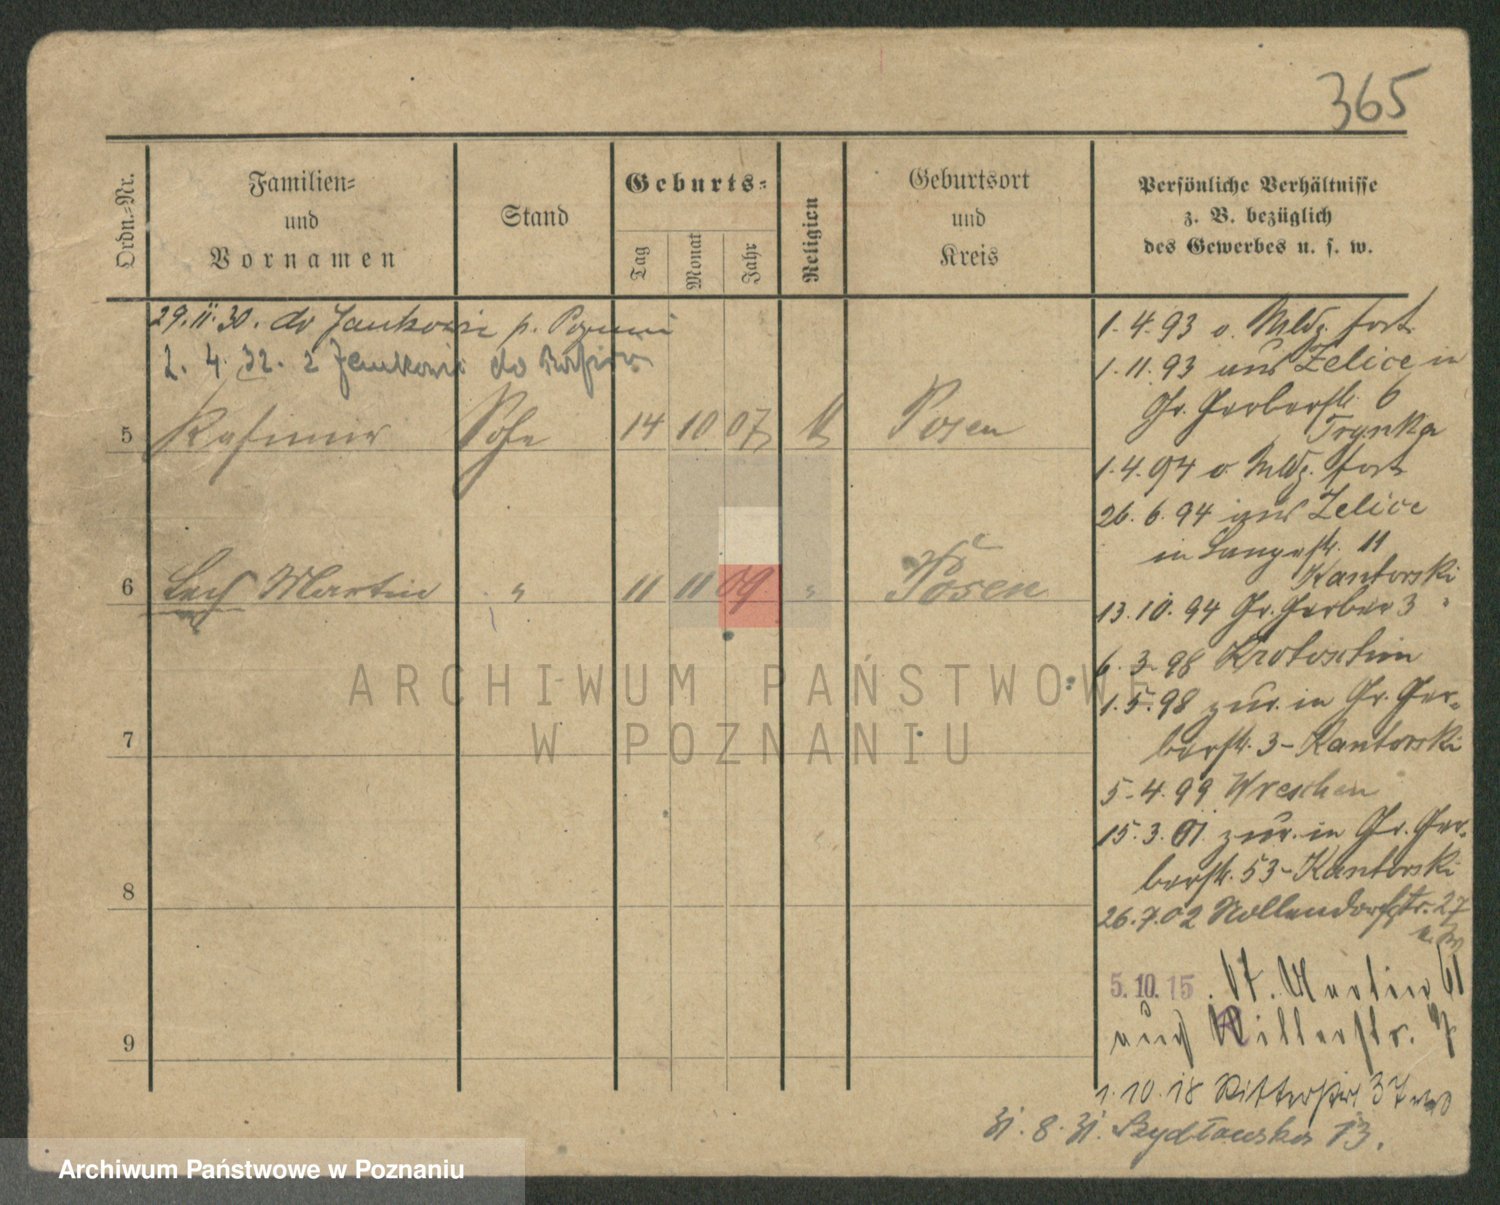 365
Ordn.=Nr.
Familien=
und
Vornamen
Stand
Geburts=
Tag
Monat
Jahr
Religion
Geburtsort
und
Kreis
Persönliche Verhältnisse
z. B. bezüglich
des Gewerbes u. s. w.
29.11.30. do p.
2. 4. 32. z do
5 Kasimir Sohn 14 10 07 Posen
6 Lech Martin " 11 11 09 " Posen
7
8
9
1.4.93 fort
1.11.93 aus Żelice in
Gr. Gerberstr. 6
Trynka
1.4.94 fort
26.6.94 aus Zelice
in Langestr. 11
Kantorski
13.10.94 Gr. Gerber 3
6.3.98 Krotoschin
1.5.98 zur. in Gr. Ger-
berstr. 3 - Kantorski
5.4.99 Wreschen
15.3.01 zur. in Gr. Ger-
berstr. 53 - Kantorski
26.7.02 Nollendorfstr. 27
5.10.15. St. Martin 61
auch Ritterstr.
1.10.18 Ritterstr. 37
31.8.31. Szydłowska 13.
ARCHIWUM PAŃSTWOWE
W POZNANIU
Archiwum Państwowe w Poznaniu